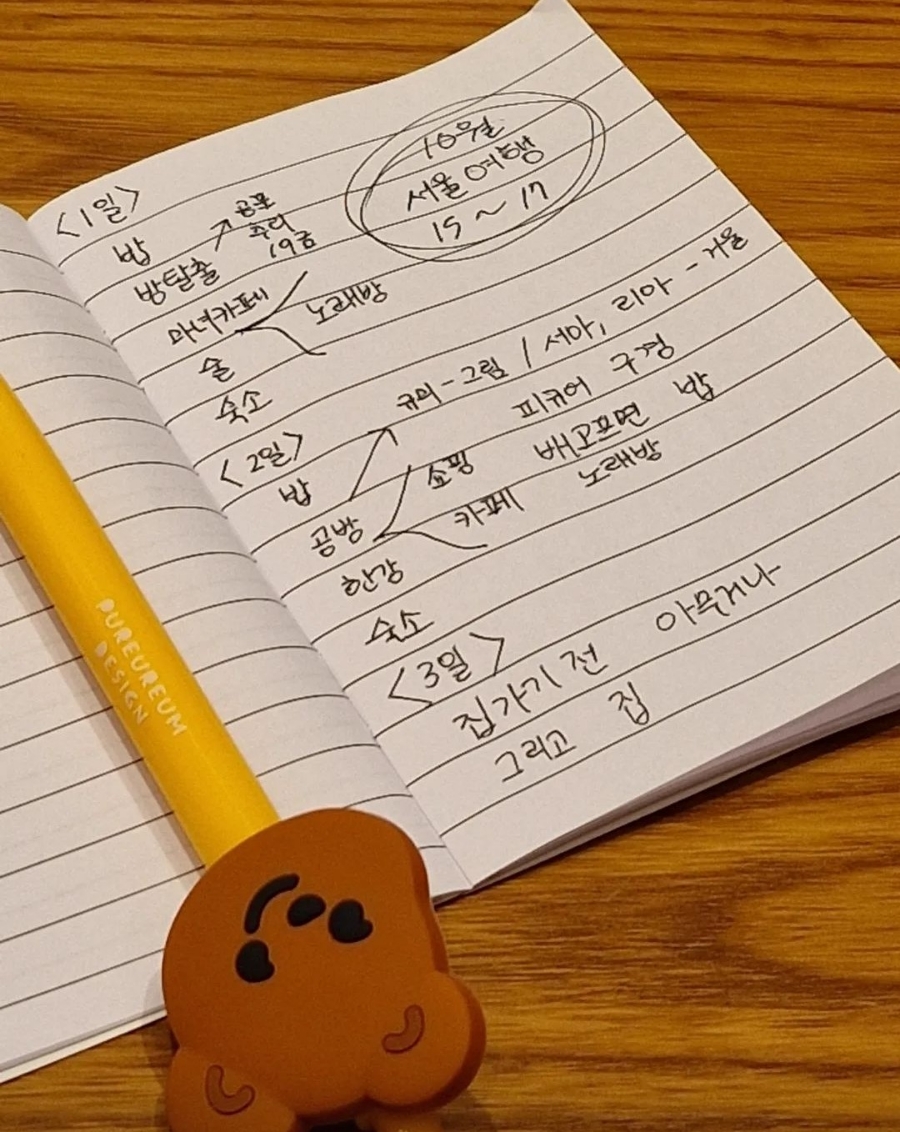 10월
서울 여행
15 ~ 17
<1일>
밥
방탈출 ↗ 공포
추리
19금
마녀카페
노래방
술
숙소
<2일>
밥
규미 - 그림 / 서아, 리아 - 거울
공방
쇼핑
피규어 구경
배고프면 밥
카페
노래방
한강
숙소
<3일>
집가기 전 아무거나
그리고 집
PUREUREUM
DESIGN